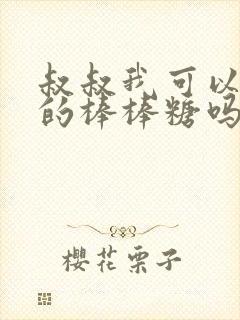 叔叔我可以
的棒棒糖吗
樱花栗子